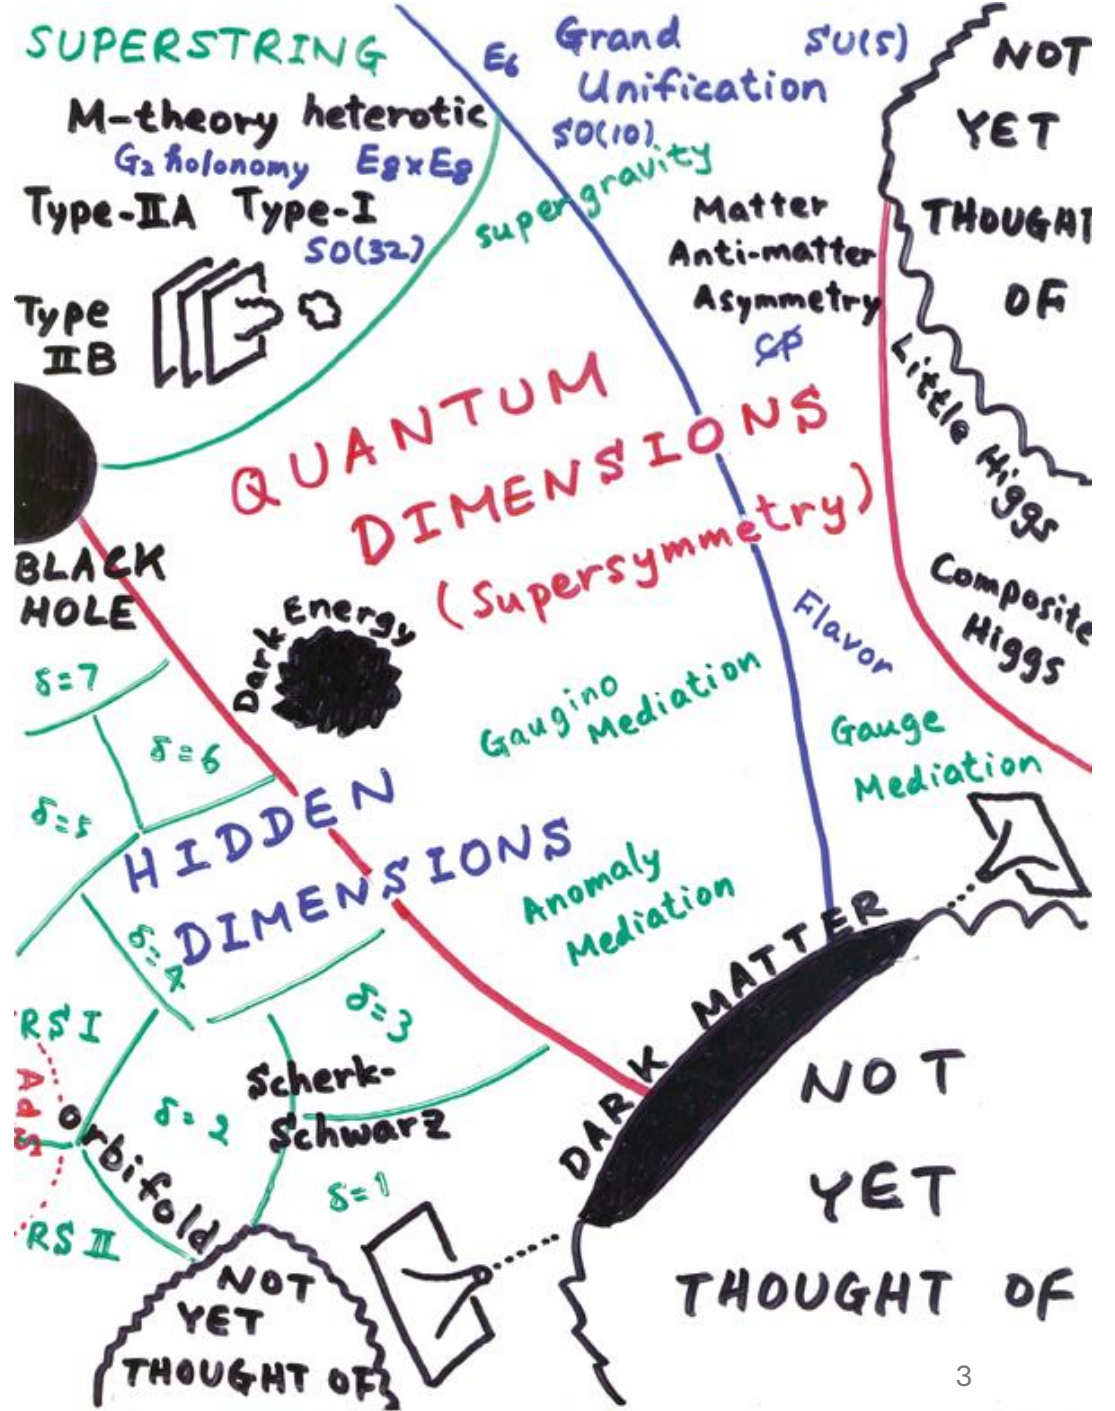 SUPERSTRING
M-theory heterotic
G₂ holonomy E₈×E₈
Type-IIA Type-I
SO(32)
Type
IIB
E₆
Grand
Unification
SU(5)
SO(10)
supergravity
Matter
Anti-matter
Asymmetry
CP
NOT
YET
THOUGHT
OF
Little Higgs
Composite
Higgs
QUANTUM
DIMENSIONS
(Supersymmetry)
BLACK
HOLE
Dark Energy
Flavor
Gaugino
Mediation
Gauge
Mediation
Anomaly
Mediation
δ=7
δ=6
δ=5
HIDDEN
DIMENSIONS
δ=4
δ=3
RS I
AdS
Orbifold
δ=2
Scherk-
Schwarz
δ=1
RS II
DARK MATTER
NOT
YET
THOUGHT OF
NOT
YET
THOUGHT OF
3